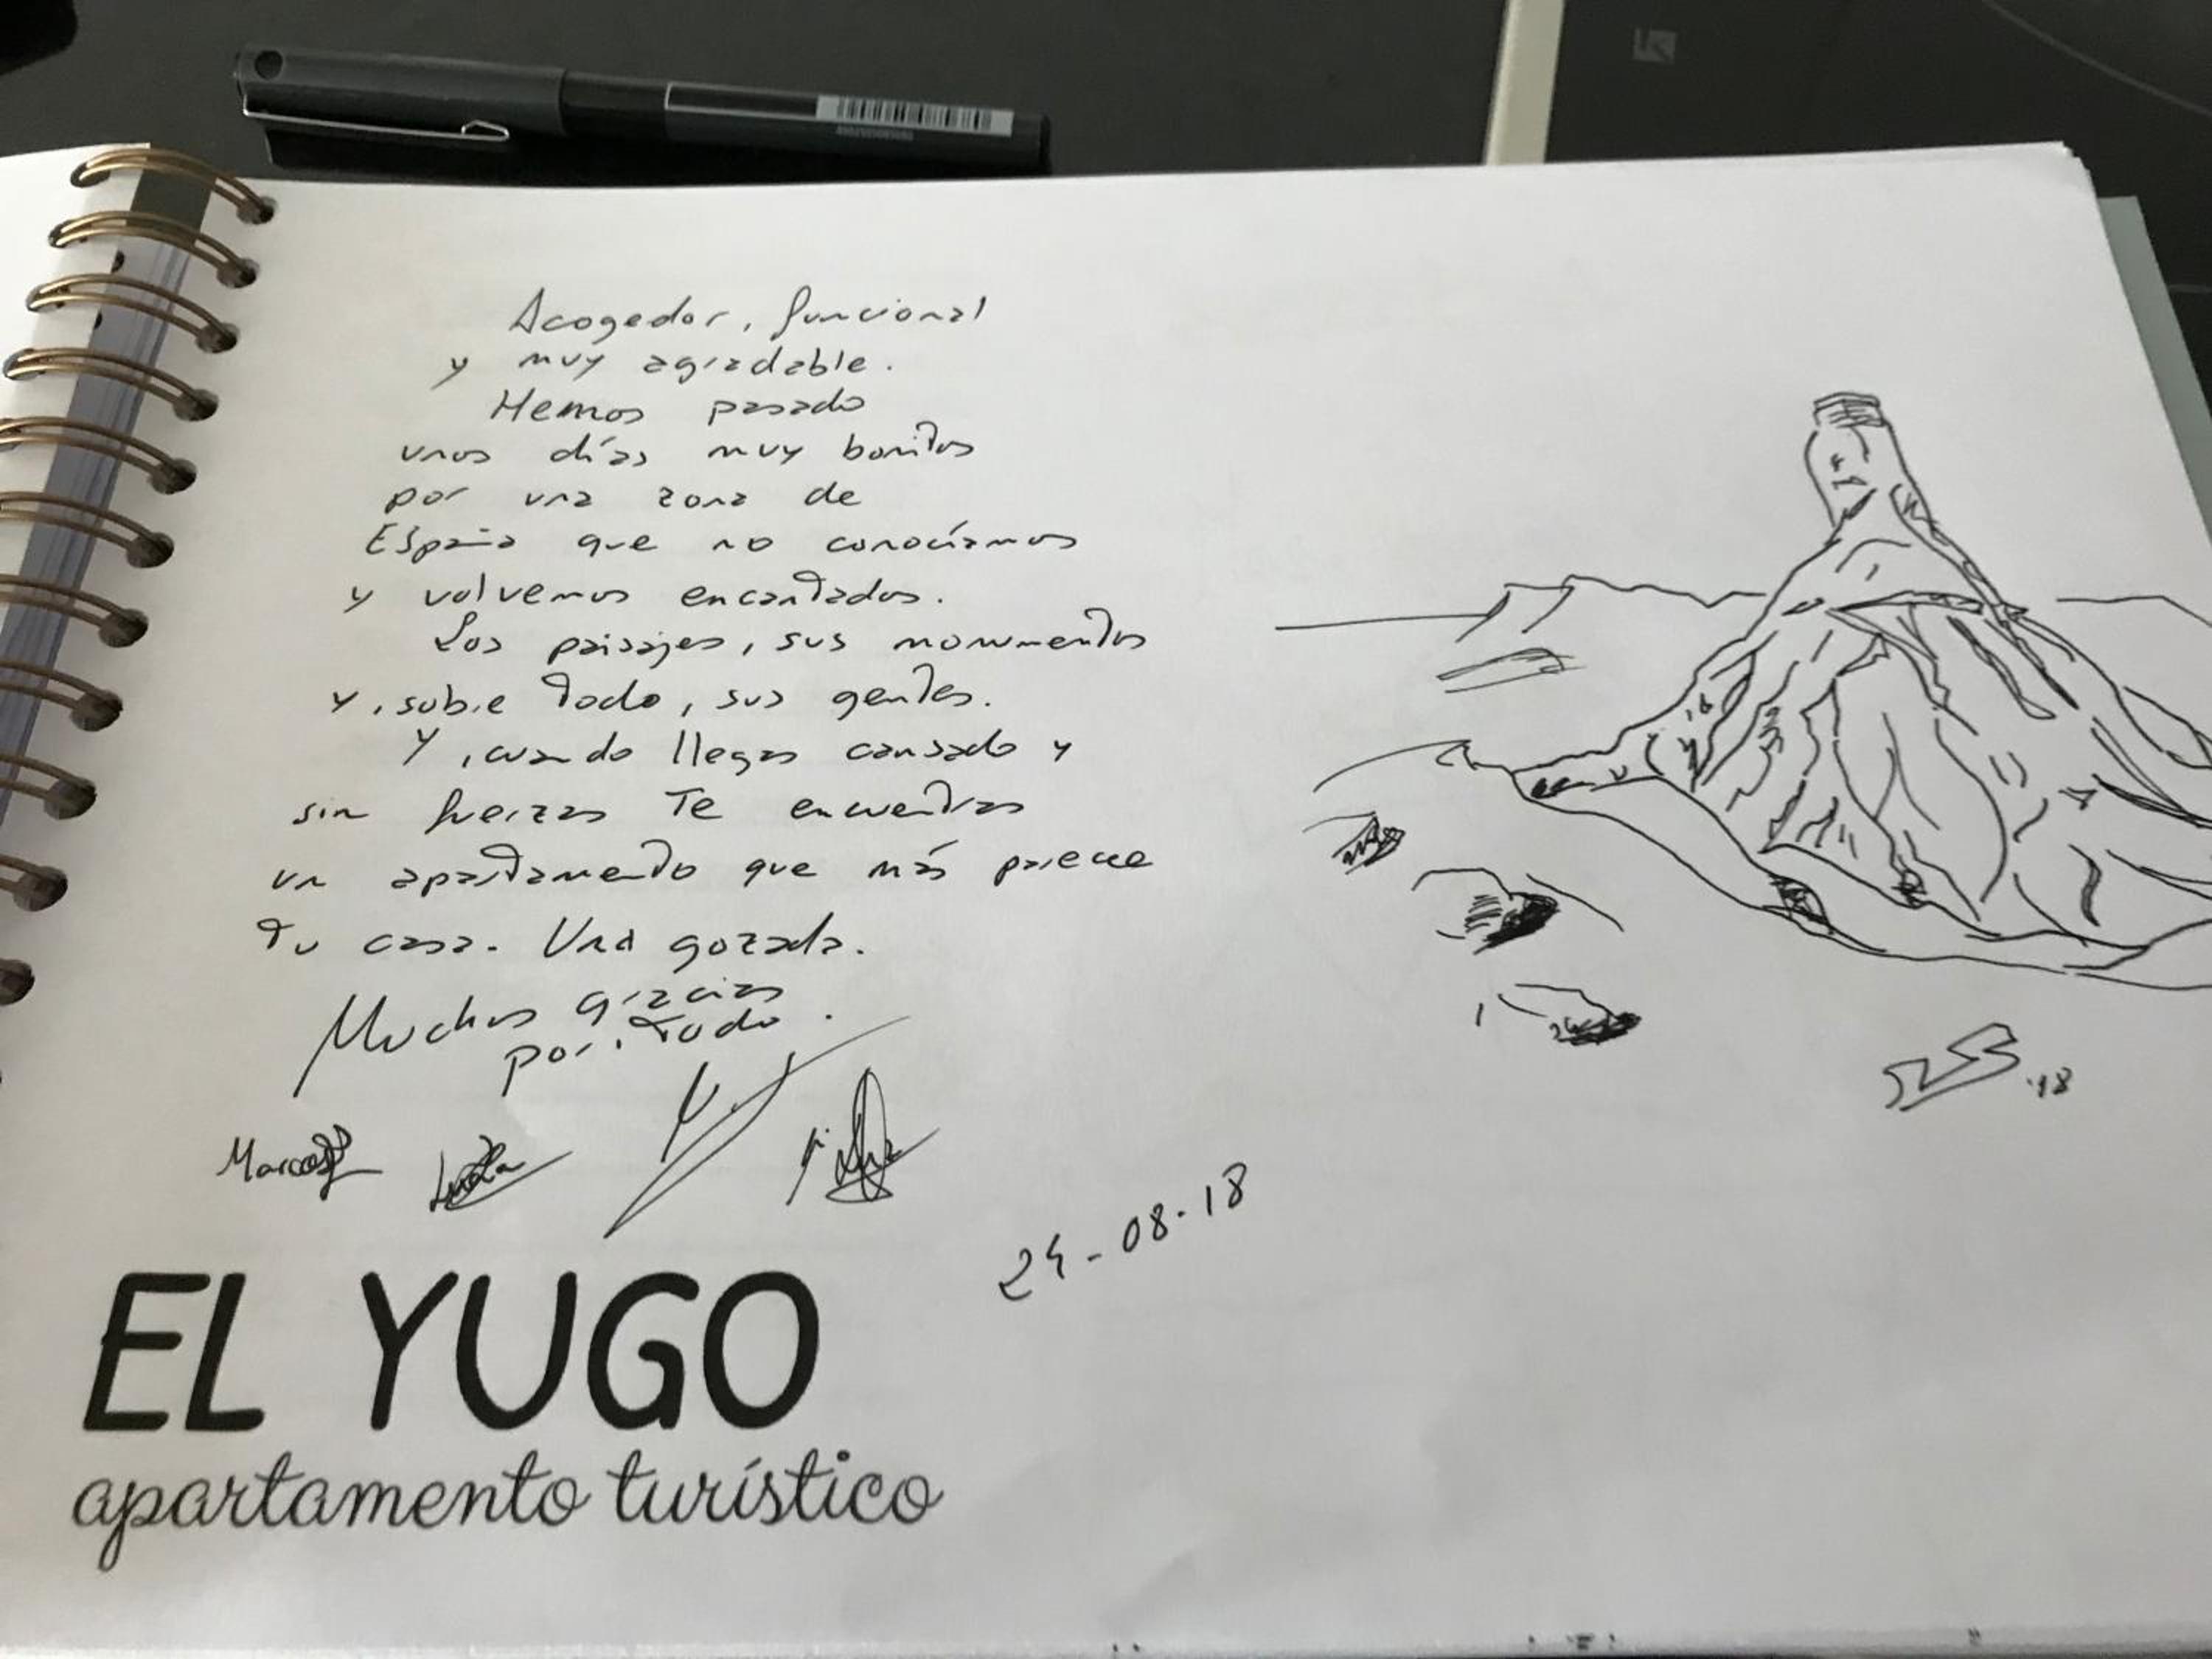 Acogedor, funcional
y muy agradable.
Hemos pasado
unos días muy bonitos
por una zona de
España que no conocíamos
y volvemos encantados.
Los paisajes, sus monumentos
y, sobre todo, sus gentes.
Y, cuando llegas cansado y
sin fuerzas te encuentras
un apartamento que más parece
tu casa. Una gozada.
Muchas gracias
por todo.
Marcos
24-08-18
.18
EL YUGO
apartamento turístico